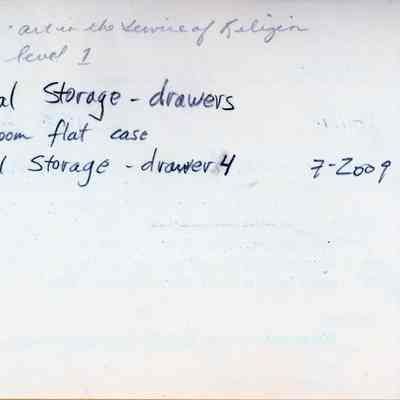 art in the Service of Religion
level 1
al Storage - drawers
oom flat case
l Storage - drawer 4 7-2009